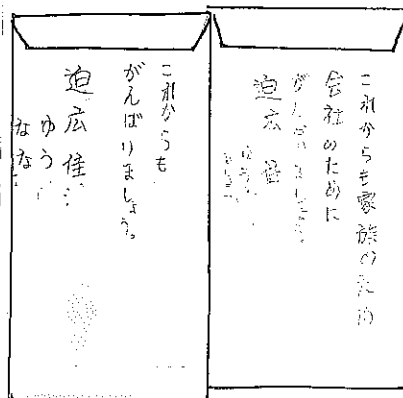 これからも家族のため
会社のために
がんばりましょう。
迫広
ゆう
これからも
がんばりましょう。
迫広佳
ゆう
なな